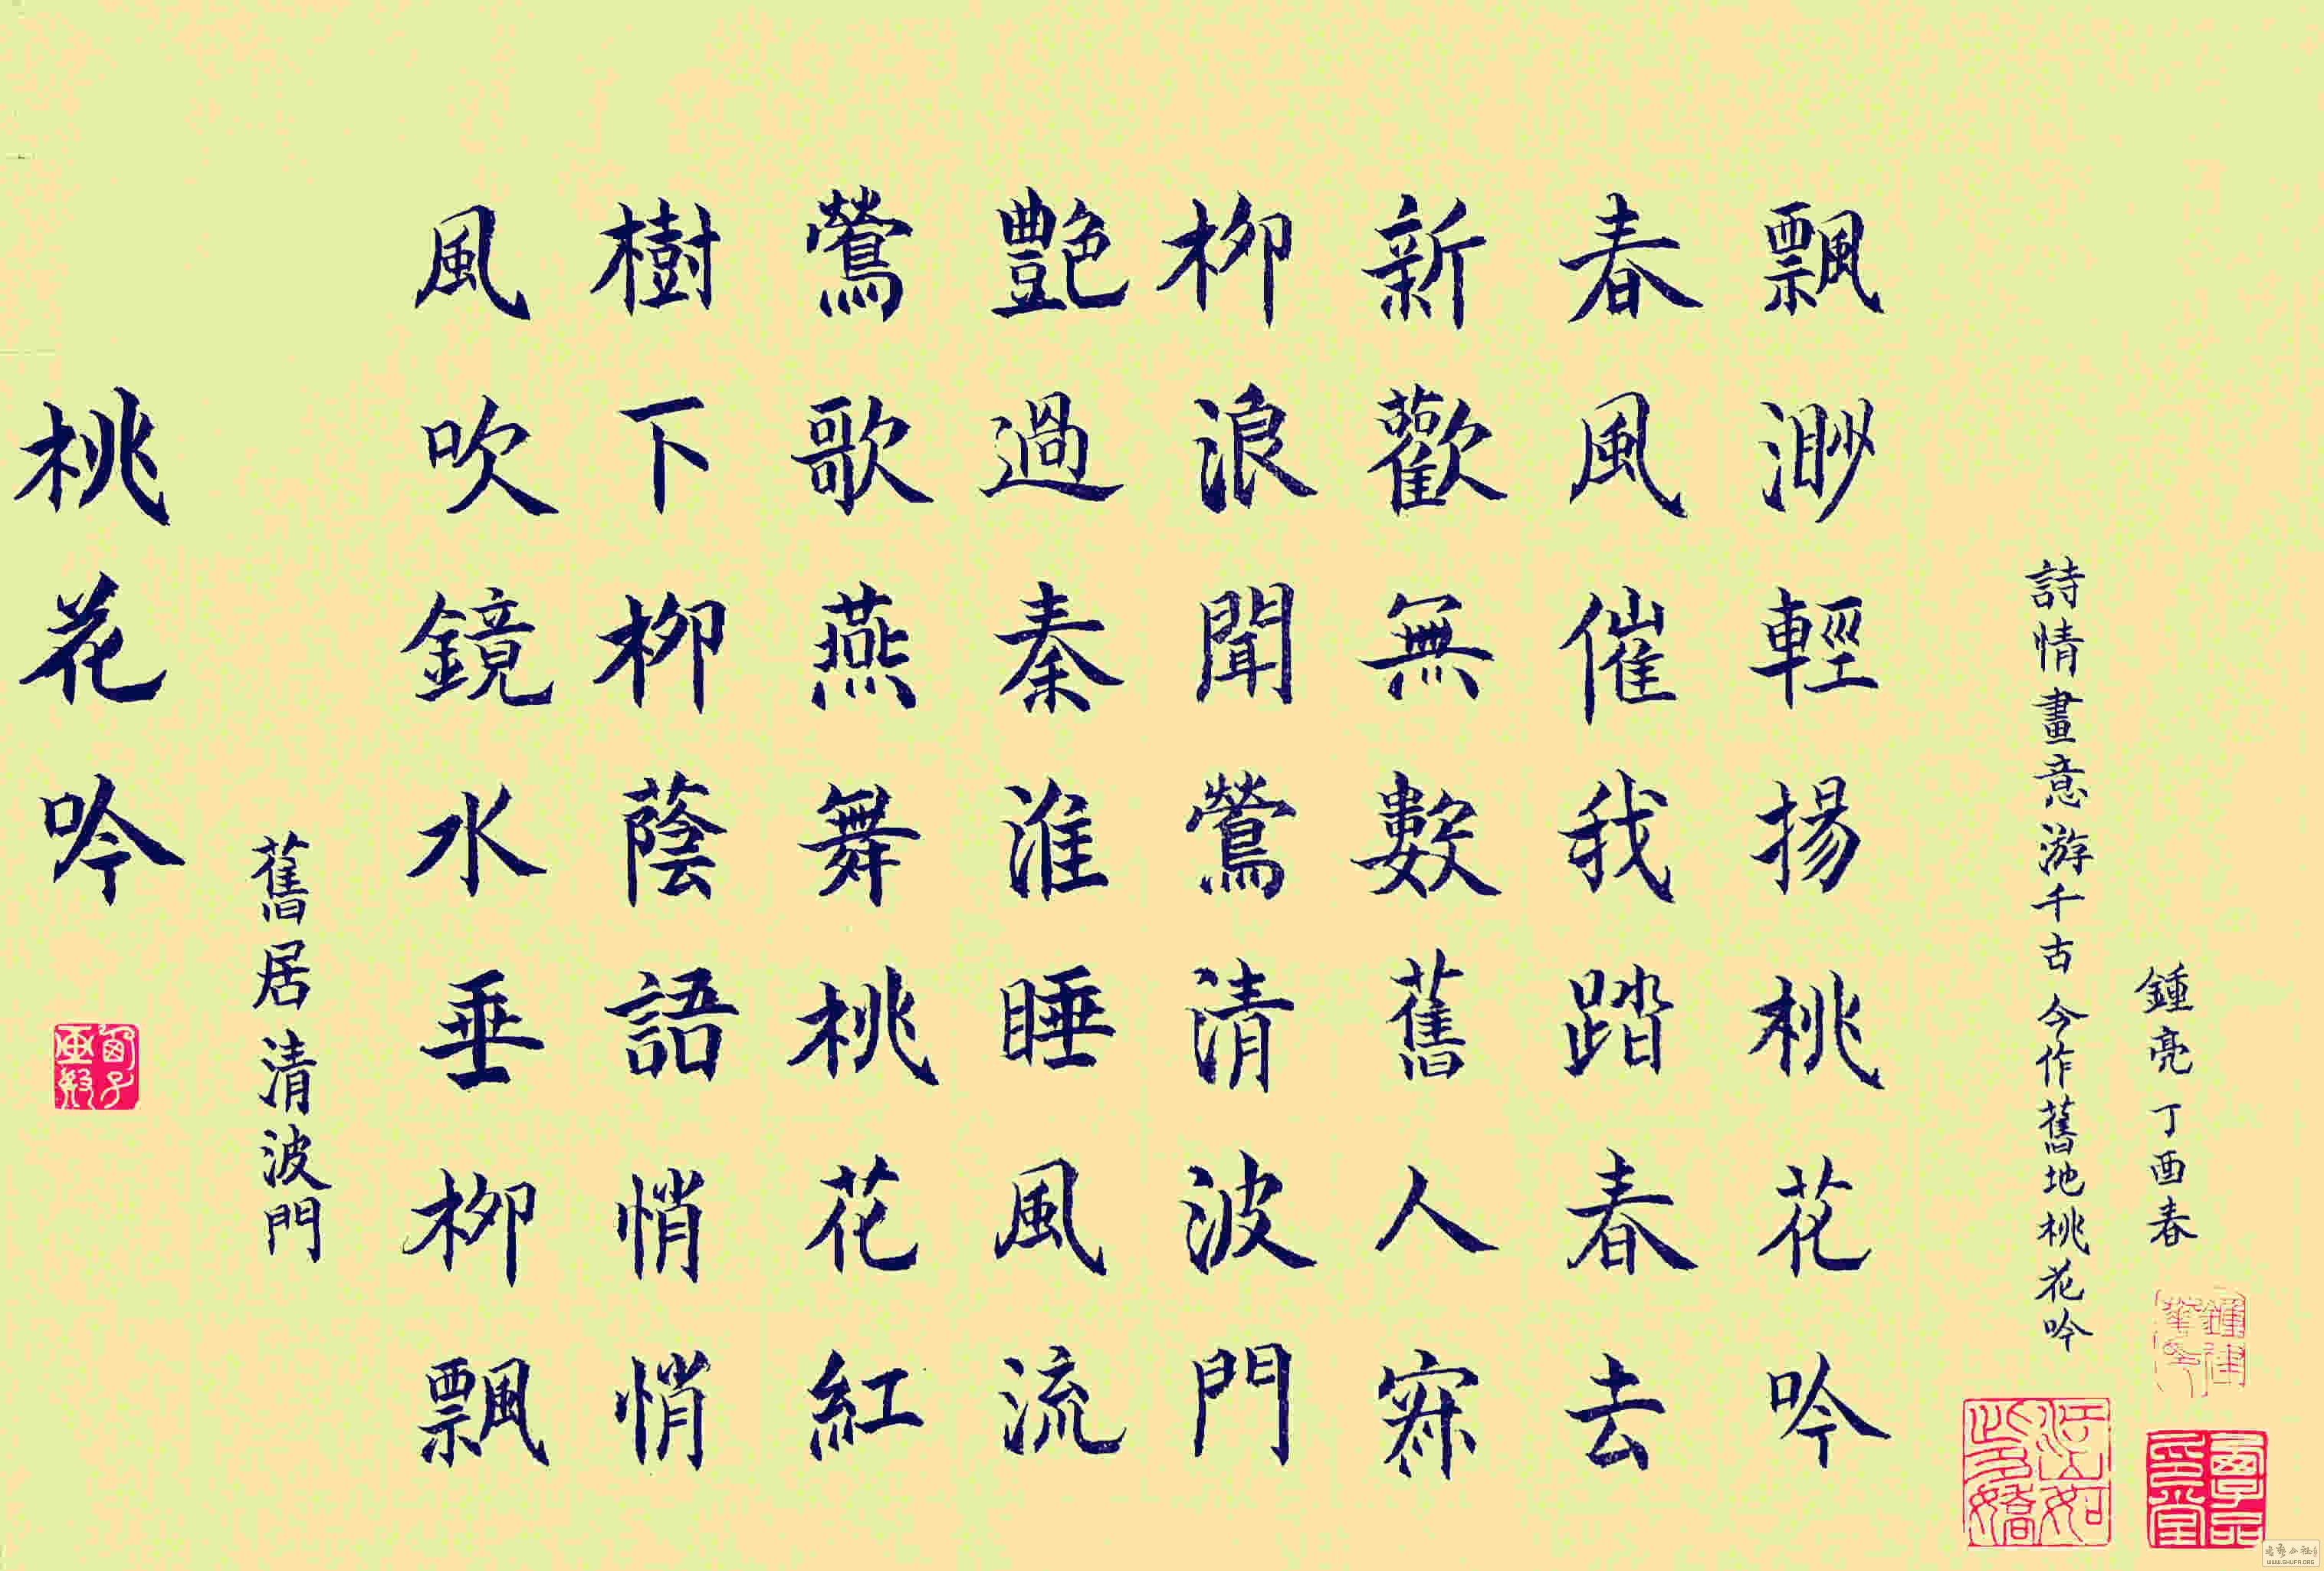 桃花吟
舊居清波門
風吹鏡水垂柳飄
樹下柳蔭語悄悄
鶯歌燕舞桃花紅
艷過秦淮睡風流
柳浪聞鶯清波門
新歡無數舊人寐
春風催我踏春去
飄渺輕揚桃花吟
詩情畫意游千古今作舊地桃花吟
鍾亮丁酉春
江山如此多嬌
WWW.SHUFA.ORG